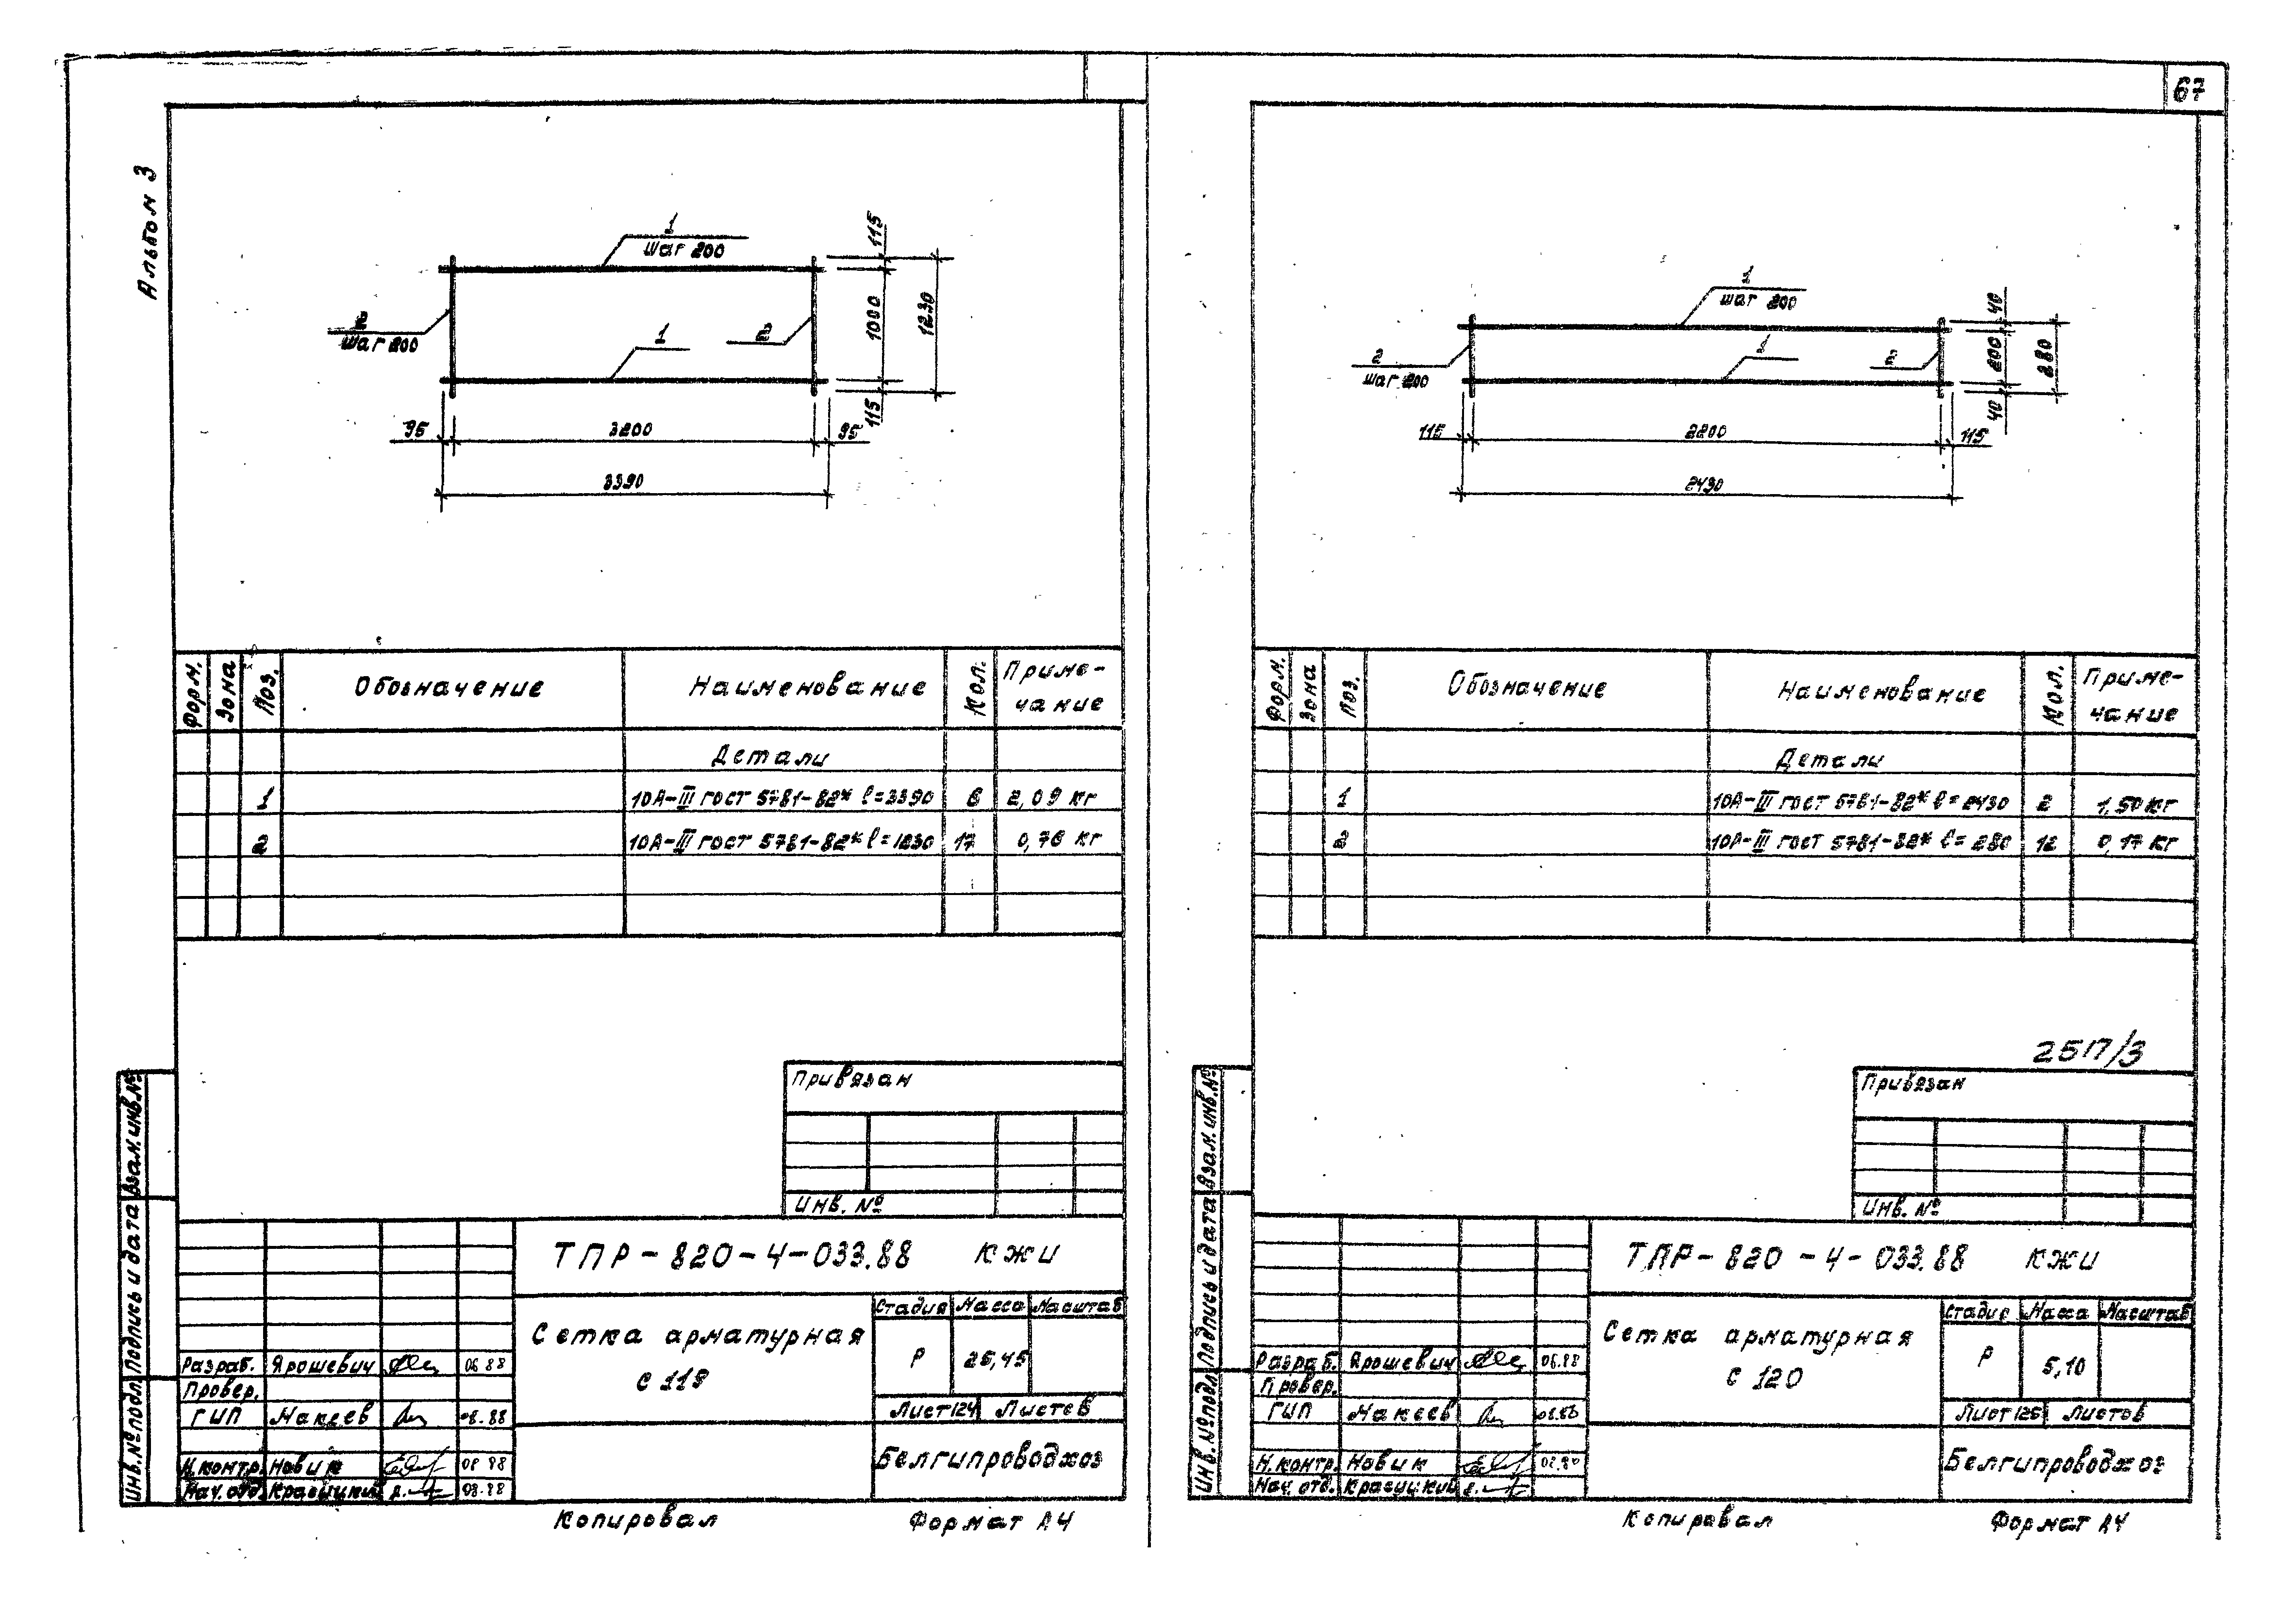 67
Альбом 3
1
шаг 200
2
шаг 200
1
2
115
1000
1230
115
95
3200
95
3390
Форм.
Зона
Поз.
Обозначение
Наименование
Кол.
Приме-
чание
Детали
1 10А-III ГОСТ 5781-82* ℓ=3390 6 2,09 кг
2 10А-III ГОСТ 5781-82* ℓ=1230 17 0,76 кг
Привязан
Инв. №
Взам. инв. №
Подпись и дата
Инв. № подл.
ТПР-820-4-033.88 КЖИ
Сетка арматурная
С 119
Стадия Масса Масштаб
Р 25,45
Лист 124 Листов
Белгипроводхоз
Разраб. Ярошевич 06 88
Провер.
ГИП Макеев 08.88
Н.контр. Новик 08 88
Нач. отд. Красицкий 08.88
Копировал Формат А4
1
шаг 200
2
шаг 200
1
2
40
200
280
40
115
2200
115
2430
Форм.
Зона
Поз.
Обозначение
Наименование
Кол.
Приме-
чание
Детали
1 10А-III ГОСТ 5781-82* ℓ=2430 2 1,50 кг
2 10А-III ГОСТ 5781-82* ℓ=280 12 0,17 кг
Привязан
Инв. №
Взам. инв. №
Подпись и дата
Инв. № подл.
ТПР-820-4-033.88 КЖИ
Сетка арматурная
С 120
Стадия Масса Масштаб
Р 5,10
Лист 125 Листов
Белгипроводхоз
Разраб. Ярошевич 06.88
Провер.
ГИП Макеев
Н.контр. Новик
Нач. отд. Красицкий
Копировал Формат А4